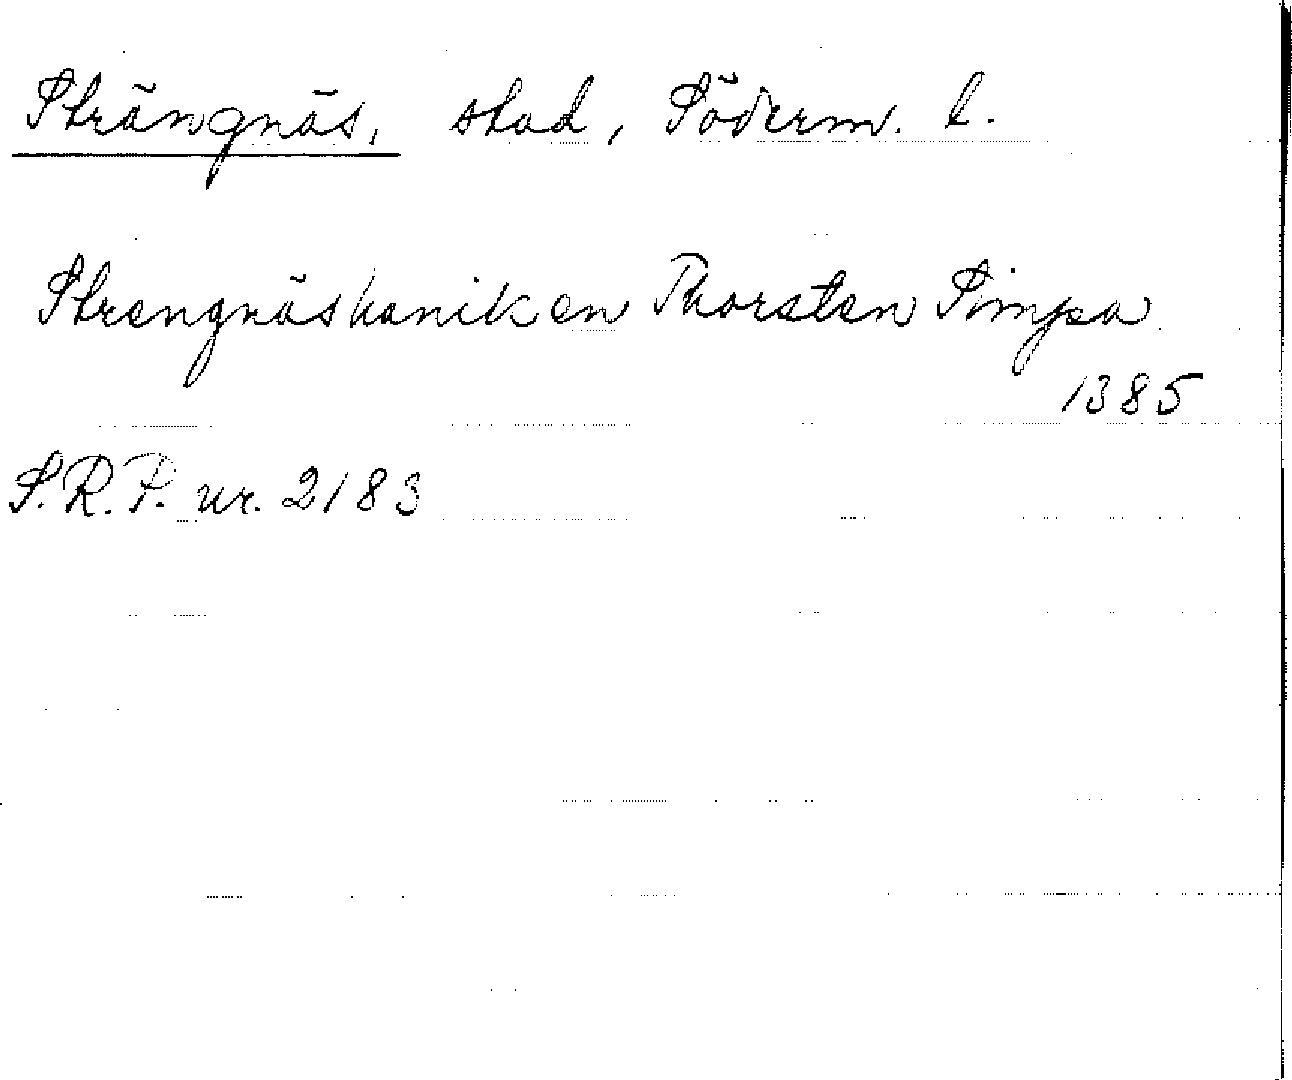 Strängnäs, stad, Söderm. l.
Strengnäskaniken Thorsten Simpa
1385
S.R.P. nr. 2183